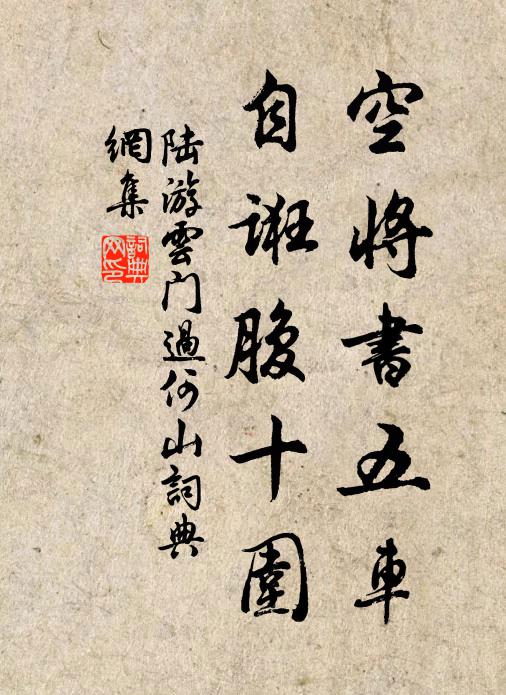 空將書五車
自誑腹十圍
陸游雲門過何山詞典
網集
詞典網印